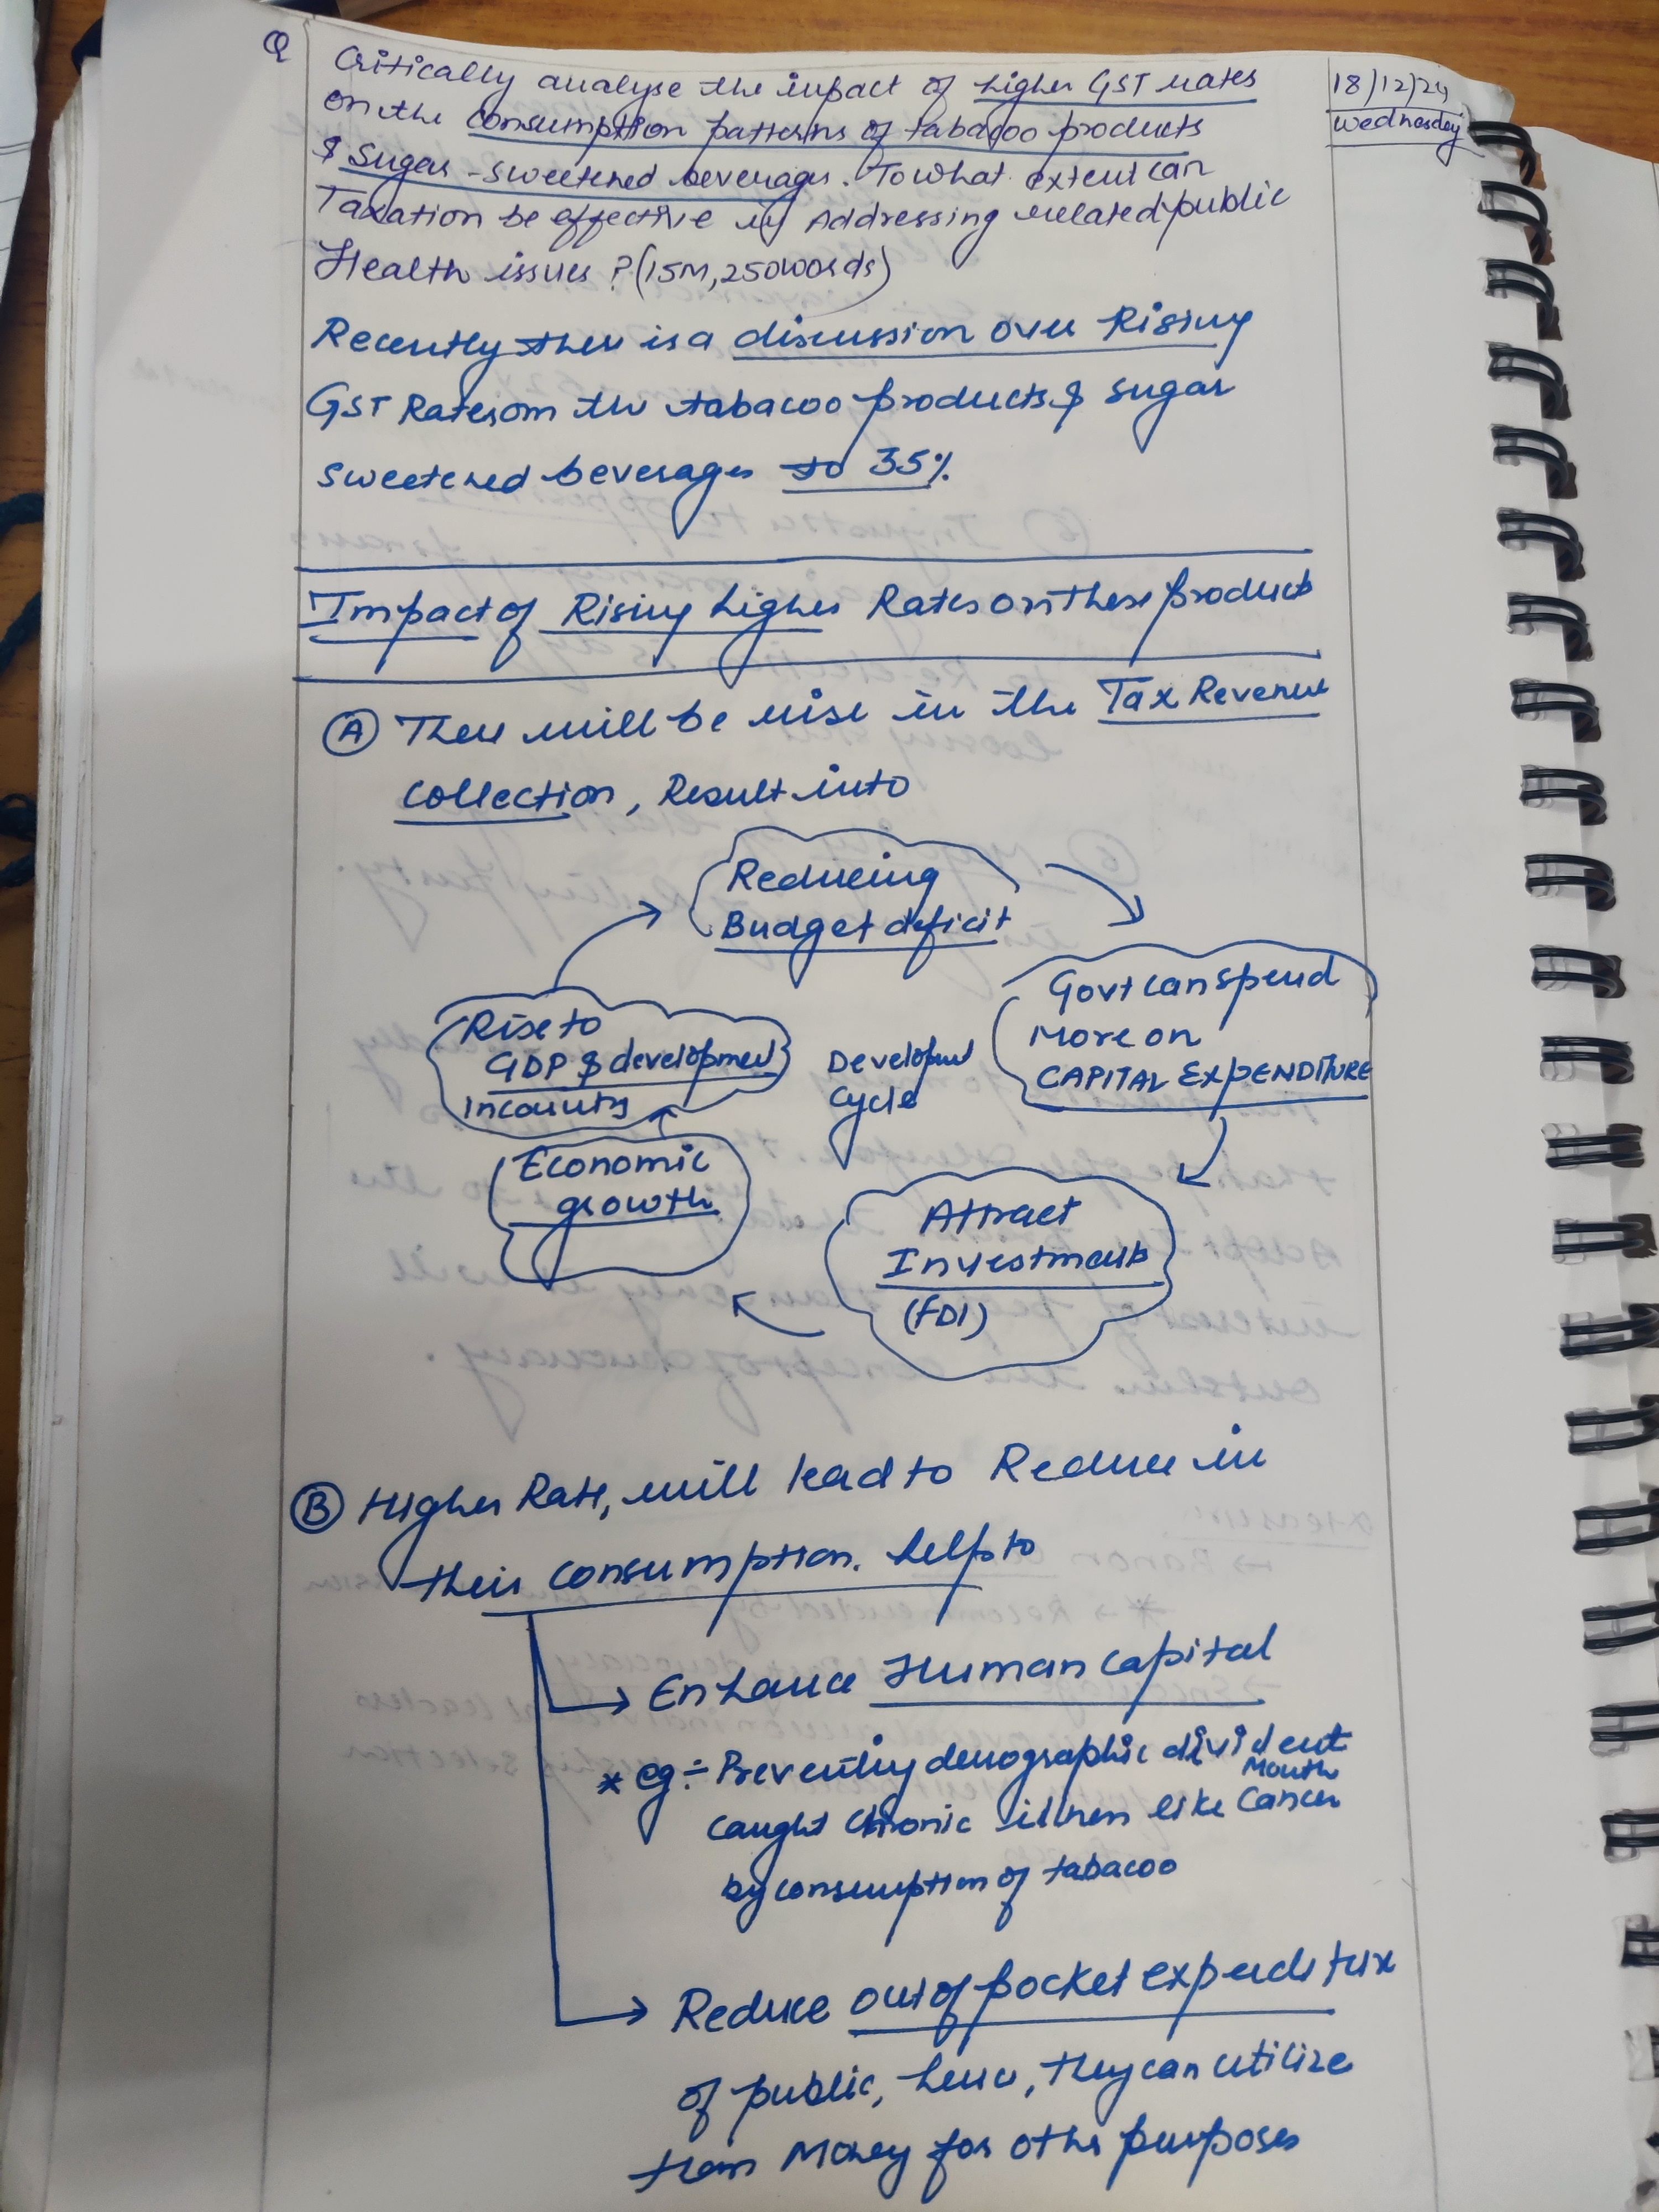 Q
Critically analyse the impact of higher GST rates
on the consumption patterns of tabacoo products
& Sugar-sweetened beverages. To what extent can
Taxation be effective in Addressing related public
Health issues ? (15M, 250 words)
18/12/24
Wednesday
Recently there is a discussion over Rising
GST Rates on the tabacoo products & sugar
sweetened beverages to 35%
Impact of Rising higher Rates on these products
(A) There will be rise in the Tax Revenue
collection, Result into
Reducing
Budget deficit
Govt can spend
More on
CAPITAL EXPENDITURE
Attract
Investments
(FDI)
Economic
growth
Rise to
GDP & development
in country
Development
Cycle
(B) Higher Rate, will lead to Reduce in
their consumption. helps to
→ Enhance Human capital
* eg:- Preventing demographic divident
caught chronic illness like Mouth Cancer
by consumption of tabacoo
→ Reduce out of pocket expenditure
of public, hence, they can utilize
their Money for other purposes